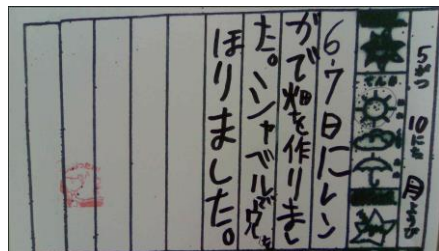 5がつ 10にち 月ようび
てんき
6.7日にレン
ガで畑を作りまし
た。シャベルで穴を
ほりました。